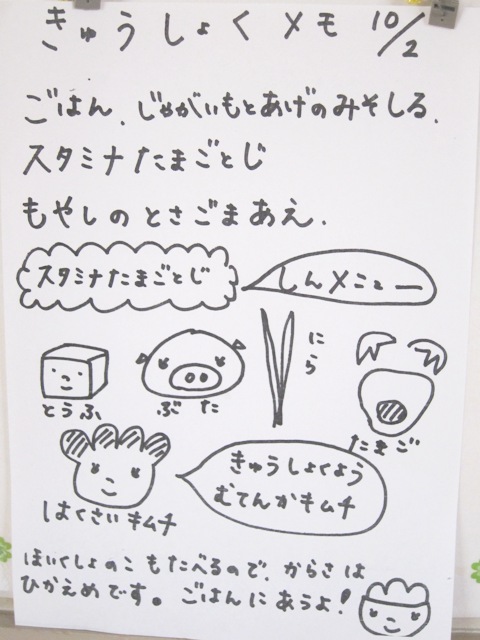 きゅうしょくメモ 10/2
ごはん、じゃがいもとあげのみそしる、
スタミナたまごとじ
もやしのとさごまあえ、
スタミナたまごとじ
しんメニュー
とうふ
ぶた
にら
たまご
きゅうしょくよう
むてんかキムチ
はくさいキムチ
ほいくしょのこもたべるので、からさは
ひかえめです。ごはんにあうよ!